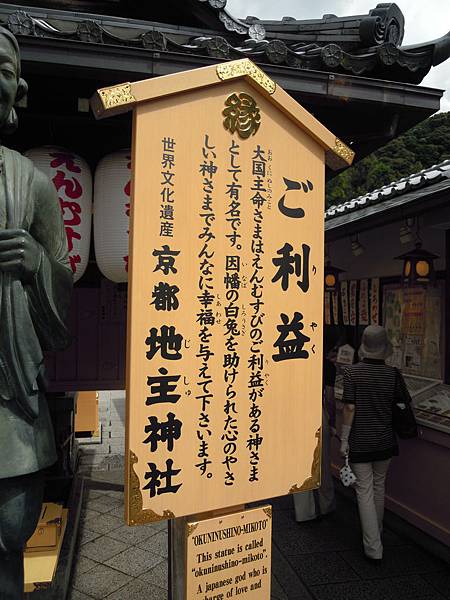 縁
ご利益
りやく
大国主命さまはえんむすびのご利益がある神さま
おおくにぬしのみこと
りやく
として有名です。因幡の白兎を助けられた心のやさ
いなば
しろうさぎ
しい神さまでみんなに幸福を与えて下さいます。
しあわせ
世界文化遺産 京都 地主神社
じしゅ
えんむすび
"OKUNINUSHINO-MIKOTO"
This statue is called
"okuninushino-mikoto".
A japanese god who is
charge of love and